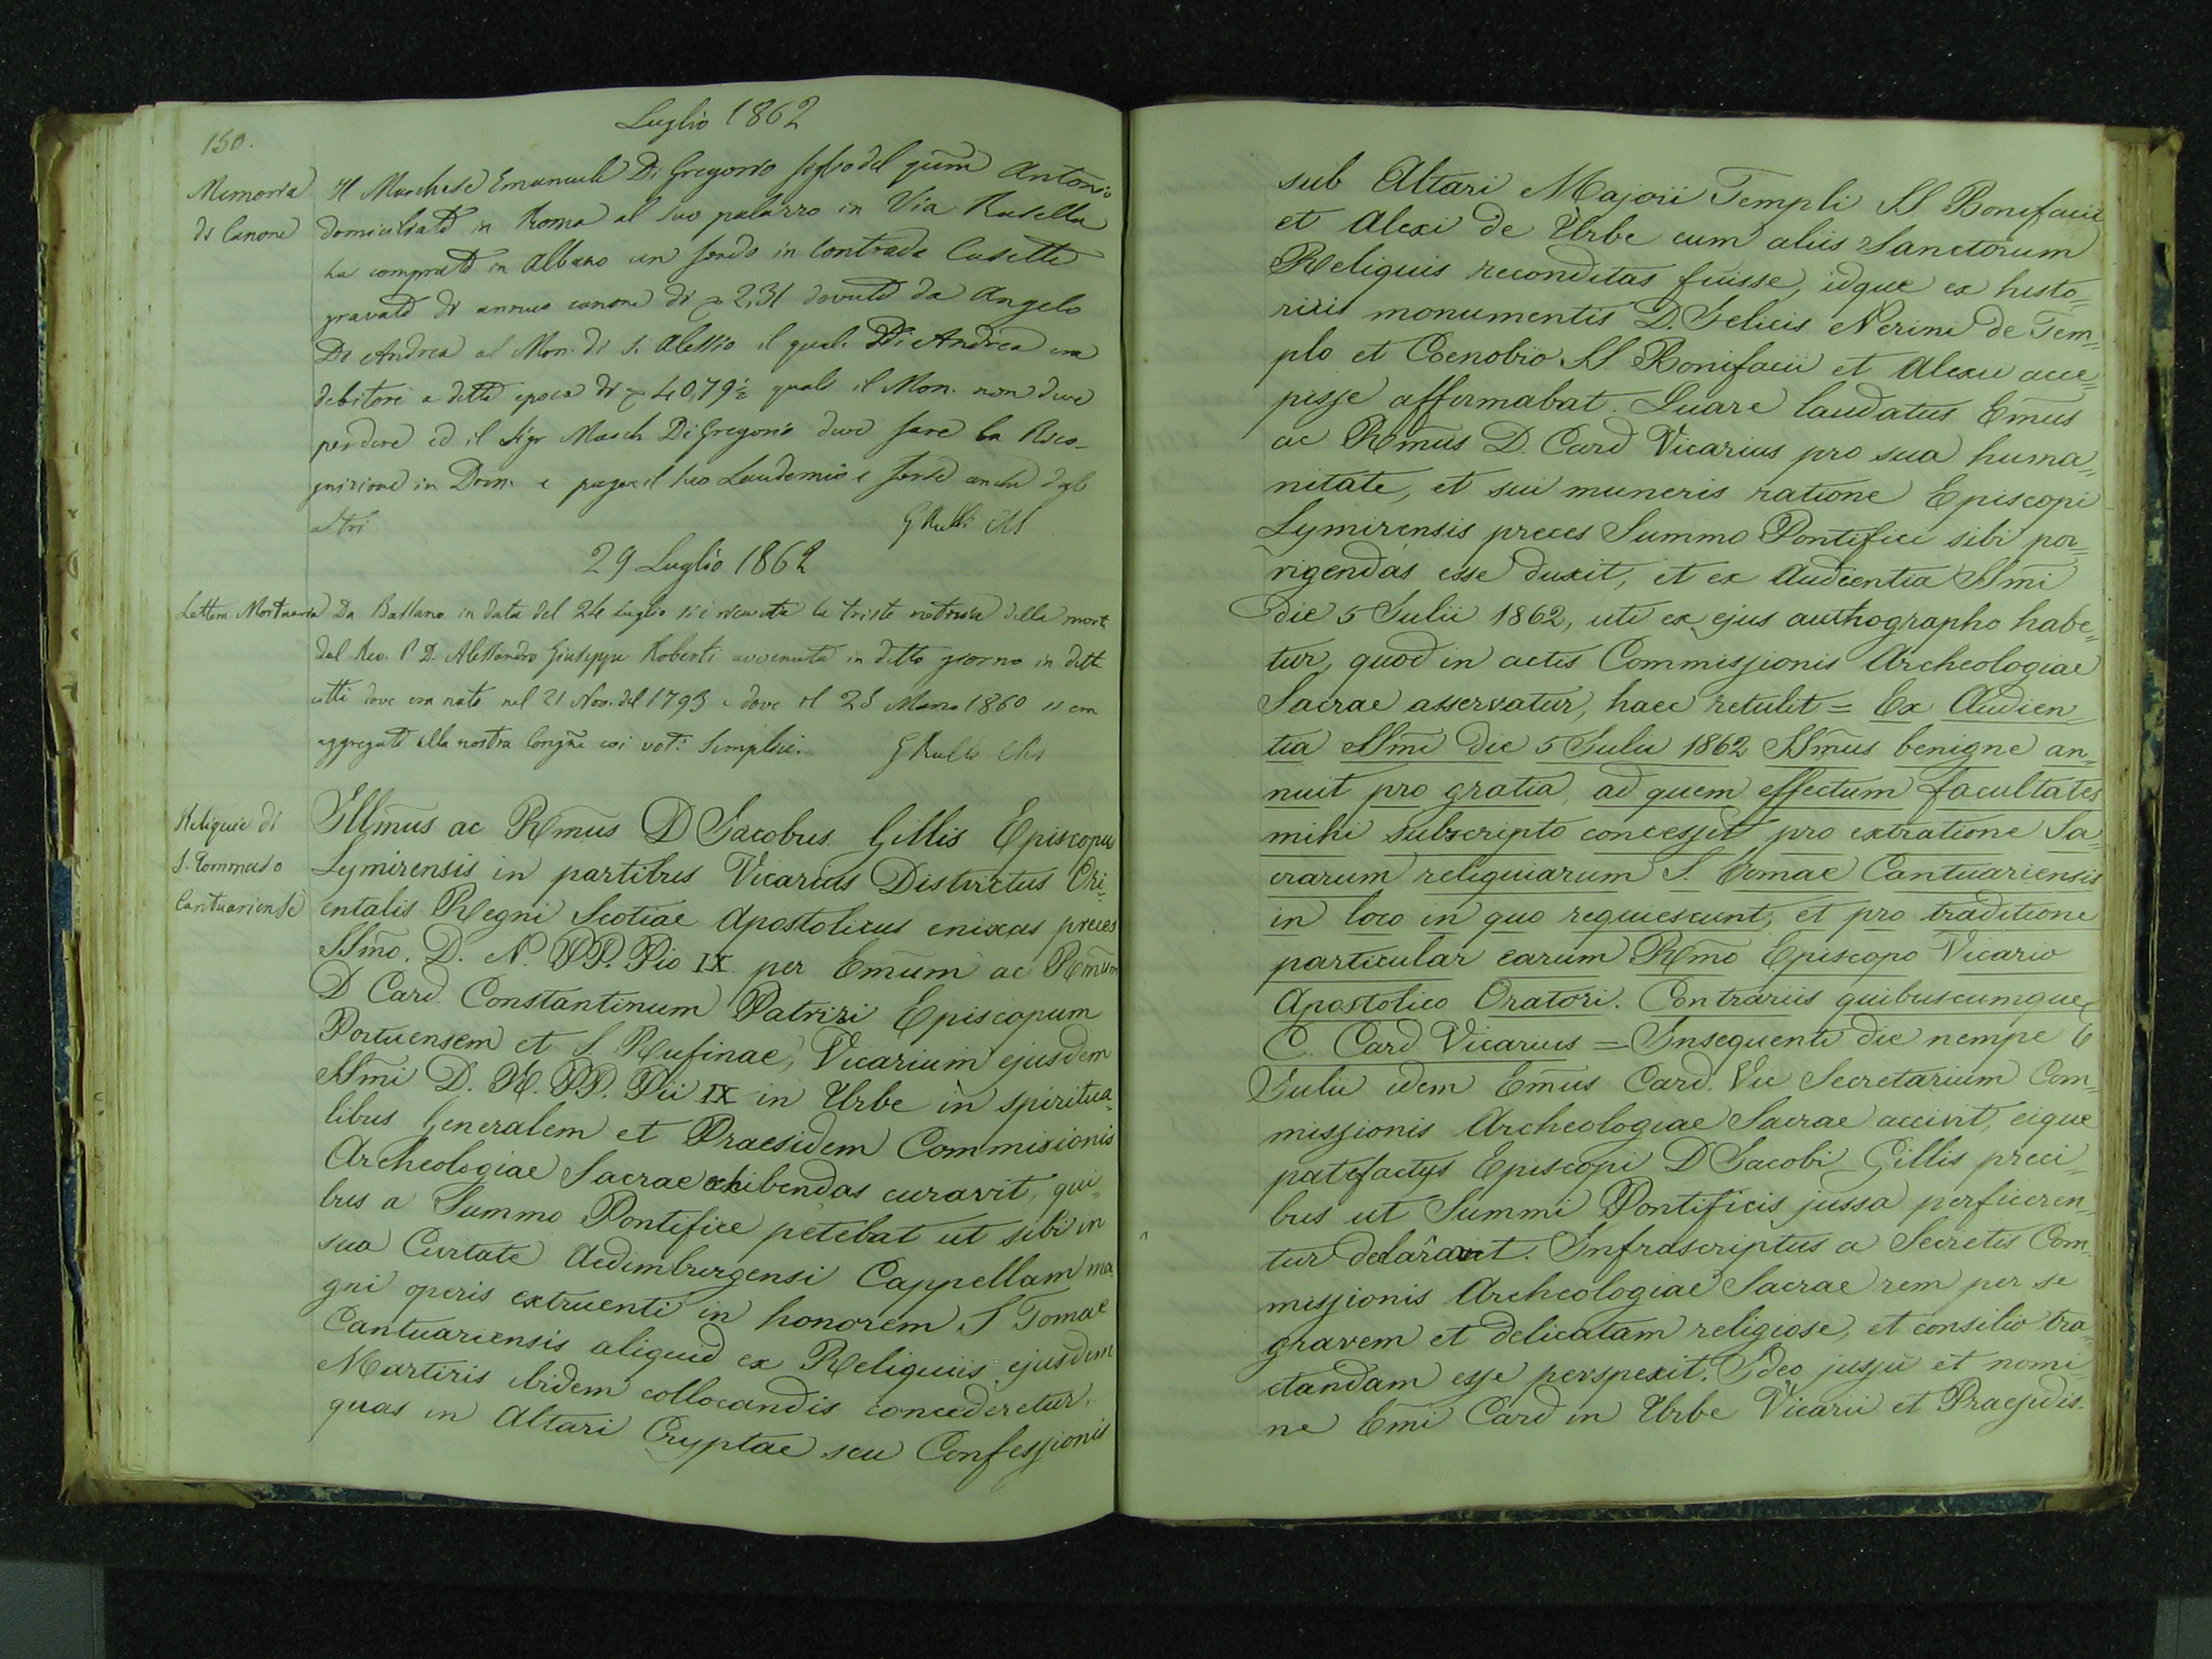 150.
Luglio 1862
Memoria
di Canone
Il Marchese Emanuele Di Gregorio figlio del qūm Antonio
domiciliato in Roma al suo palazzo in Via Rasella
ha comprato in Albano un fondo in contrada Casette
gravato di annuo canone di 2,31 dovuto da Angelo
Di Andrea al Mon. di S. Alessio il quale Di Andrea era
debitore a detta epoca di 40,79½ quali il Mon. non deve
perdere ed il Sigr March Di Gregorio deve fare la Rico-
gnizione in Dom. e pagare il suo Laudemio e forse anche degli
altri
G Rulli
29 Luglio 1862
Lettera Mortuaria
Da Bassano in data del 24 luglio si è ricevuta la triste notizia della morte
del Rev. P D. Alessandro Giuseppe Roberti avvenuta in detto giorno in detta
città dove era nato nel 21 Nov. del 1793 e dove il 25 Marzo 1860 si era
aggregato alla nostra Congñe coi voti semplici.
G Rulli
Reliquie di
S. Tommaso
Cantuariense
Illm̄us ac Rm̄us D Jacobus Gillis Episcopus
Lymirensis in partibus Vicarius Districtus Ori=
entalis Regni Scotiae Apostolicus enixas preces
SSm̄o. D. N. PP. Pio IX per Em̄um ac Rm̄um
D Card. Constantinum Patrizi Episcopum
Portuensem et S Rufinae, Vicarium ejusdem
SSm̄i D. N. PP. Pii IX in Urbe in spiritua=
libus Generalem et Praesidem Commisionis
Archeologiae Sacrae exhibendas curavit, qui=
bus a Summo Pontifice petebat ut sibi in
sua Civitate Aedimburgensi Cappellam ma=
gni operis extruenti in honorem S Tomae
Cantuariensis aliquid ex Reliquiis ejusdem
Martiris ibidem collocandis concederetur.
quas in Altari Cryptae seu Confessionis
sub Altari Majori Templi SS. Bonifacii
et Alexi de Urbe cum aliis Sanctorum
Reliquis reconditas fuisse, idque ex histo=
ricis monumentis D. Felicis Nerini de Tem=
plo et Coenobio SS. Bonifacii et Alexii acce=
pisse affirmabat. Quare laudatus Em̄us
ac Rm̄us D. Card Vicarius pro sua huma=
nitate, et sui muneris ratione Episcopi
Lymirensis preces Summo Pontifici sibi por=
rigendas esse duxit, et ex Audientia SSm̄i
die 5 Julii 1862, uti ex ejus authographo habe=
tur, quod in actis Commissionis Archeologiae
Sacrae asservatur, haec retulit = Ex Audien=
tia SSm̄i die 5 Julii 1862 SSm̄us benigne an=
nuit pro gratia, ad quem effectum facultates
mihi subscripto concessit pro extratione Sa=
crarum reliquiarum S. Tomae Cantuariensis
in loco in quo requiescunt, et pro traditione
particular earum Rm̄o Episcopo Vicario
Apostolico Oratori. Contrariis quibuscumque
C. Card. Vicarius = Insequenti die nempe 6
Julii idem Em̄us Card. Vic Secretarium Com=
missionis Archeologiae Sacrae accivit, eique
patefactis Episcopi D Jacobi Gillis preci=
bus ut Summi Pontificis jussa perficeren=
tur declaravit. Infrascriptus a Secretis Com=
missionis Archeologiae Sacrae rem per se
gravem et delicatam religiose, et consilio tra=
ctandam esse perspexit. Ideo jussu et nomi=
ne Em̄i Card in Urbe Vicarii et Praesidis